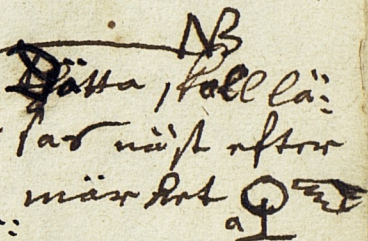 NB
Dätta skall lä:
sas näst efter
märket
a